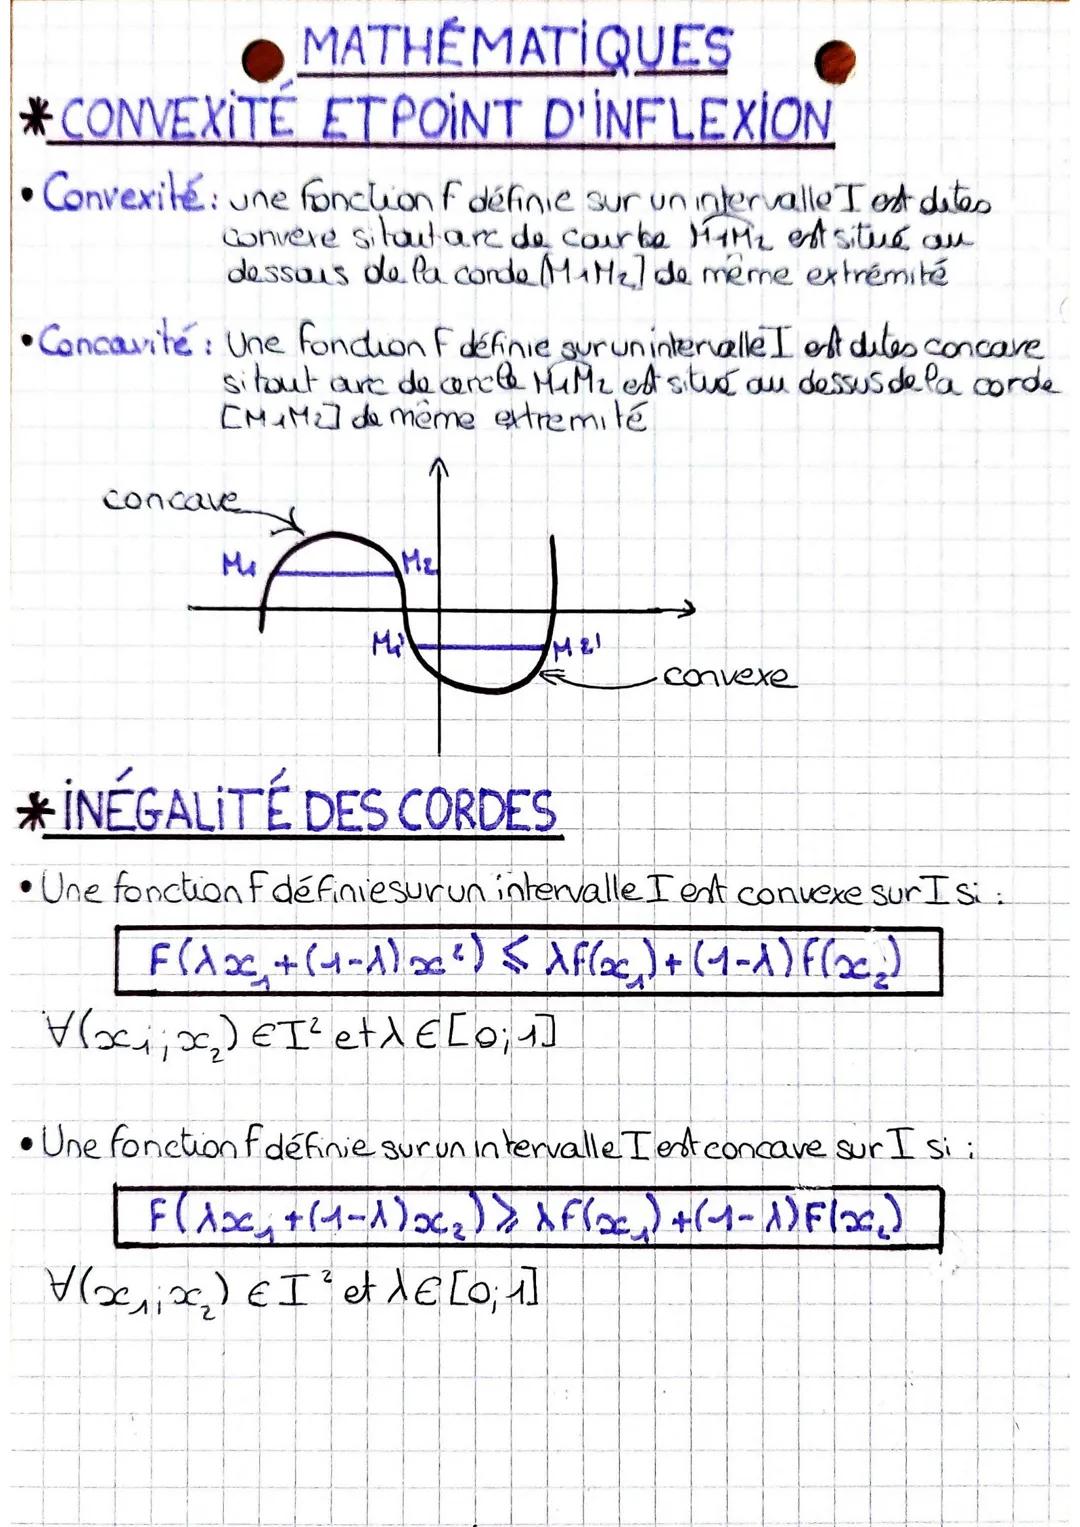 MATHÉMATIQUES
* CONVEXITÉ ET POINT D'INFLEXION
• Convexité : une fonction f définie sur un intervalle I est dites
convexe si tout arc de courbe M1M2 est situé au
dessous de la corde [M1M2] de même extrémité
• Concavité : Une fonction F définie sur un intervalle I est dites concave
si tout arc de cercle M1M2 est situé au dessus de la corde
[M1M2] de même extremité
concave
M1 M2
M1' M2'
convexe
* INÉGALITÉ DES CORDES
• Une fonction F définie sur un intervalle I est convexe sur I si :
F(λx₁+(1-λ)x²) ⩽ λf(x₁)+(1-λ)f(x₂)
∀(x₁;x₂) ∈ I² et λ ∈ [0;1]
• Une fonction f définie sur un intervalle I est concave sur I si :
F(λx₁+(1-λ)x₂) ⩾ λf(x₁)+(1-λ)F(x₂)
∀(x₁;x₂) ∈ I² et λ ∈ [0;1]